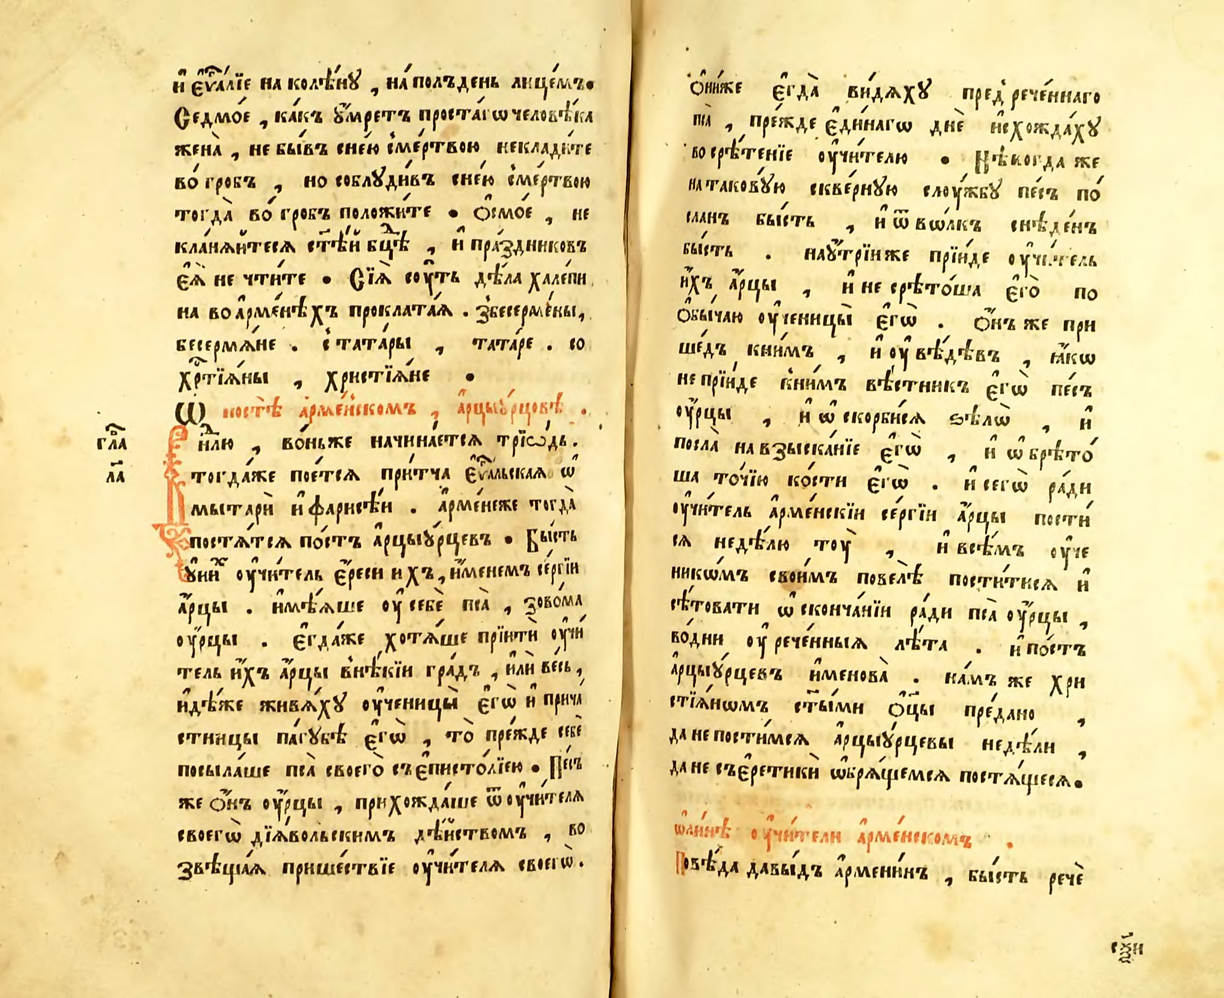 и҆ є҆ѵⷢ҇аліе на колѣ́нꙋ , на́ полъдень лице́мъ.
Седмо́е , ка́къ ᲂу҆́мретъ проста́гѡ человѣ́ка
жена̀ , не бы́въ снею̀ сме́ртвою некладите
во́ гробъ , но соблꙋди́въ снею̀ сме́ртвою
тогда̀ во́ гробъ положи́те . Ѻ҆смо́е , не
кланѧ́йтесѧ ст҃ѣ́й бц҃ѣ , и҆ пра́здниковъ
є҆ѧ̀ не чти́те . Сїѧ̀ со́уть дѣ́ла халепи
на во а҆рме́нѣхъ проклатаѧ . ѕбесерме́ны,
бесермѧ́не . с тата́ры , тата́ре . со
хрⷭ҇тїѧ́ны , христїѧ́не .
Ѡ҆ постѣ̀ а҆рме́нскомъ , а҆рцыꙋ́рцовѣ .
гла҃
ла҃
нлю҃ , во́ньже начина́етсѧ трїѡ́дь.
тогда́же пое́тсѧ при́тча є҆ѵⷢ҇альскаѧ ѡ҆
мытарѝ и҆ фарисе́и . а҆рме́неже тогда̀
постѧ́тсѧ по́стъ а҆рцыꙋ́рцевъ . Бы́сть
ꙋни́х ᲂу҆чи́тель є҆́реси и҆́хъ, и҆́менемъ се́ргїи
а҆́рцы . и҆мѣ́ѧше ᲂу҆ себѐ пса̀ , зо́вома
ᲂу҆́рцы . є҆гда́же хотѧ́ше прїитѝ ᲂу҆чи
тель и҆́хъ а҆́рцы внѣ́кїи гра́дъ , и҆лѝ ве́сь,
и҆дѣ́же живѧ́хꙋ ᲂу҆ченицы̀ є҆гѡ̀ и҆ прича
стницы па́гꙋбѣ є҆гѡ̀ , то̀ пре́жде себѐ
посыла́ше пса̀ своего̀ съ є҆писто́лїею . Пе́съ
же ѻ҆́нъ ᲂу҆́рцы , прихожда́ше ѿ ᲂу҆чи́телѧ
своегѡ̀ дїѧ́вольскимъ дѣ́йствомъ , во
звѣща́ѧ прише́ствїе ᲂу҆чи́телѧ своегѡ̀.
ѻ҆ни́же є҆гда̀ ви́дѧхꙋ пред̾ рече́ннаго
пса̀ , пре́жде є҆ди́нагѡ днѐ и҆схожда́хꙋ
во срѣ́тенїе ᲂу҆чи́телю . Нѣ́когда же
на такову́ю скве́рную слоу́жбу пе́съ по́
сланъ бы́сть , и҆ ѿ во́лкъ снѣде́нъ
бы́сть . наꙋ҆́трїиже прїи́де ᲂу҆чи́тель
и҆́хъ а҆́рцы , и҆ не срѣто́ша є҆го̀ по
ѻ҆бы́чаю ᲂу҆ченицы̀ є҆гѡ̀ . Ѻ҆́нъ же при
ше́дъ кни́мъ , и҆ ᲂу҆вѣ́дѣвъ , ꙗ҆́кѡ
не прїи́де кни́мъ вѣ́стникъ є҆гѡ̀ пе́съ
ᲂу҆́рцы , и҆ ѡ҆скорби́сѧ ѕѣлѡ̀ , и҆
посла̀ на взыска́нїе є҆гѡ̀ , и҆ ѡ҆брѣто́
ша то́чїю ко́сти є҆гѡ̀ . и҆ сегѡ̀ ра́ди
ᲂу҆чи́тель а҆рме́нскїи се́ргїи а҆́рцы пости́
сѧ недѣ́лю тоу̀ , и҆ всѣ́мъ ᲂу҆че
никѡ́мъ свои́мъ повелѣ̀ пости́тисѧ и҆
сѣ́товати ѡ҆ сконча́нїи ра́ди пса̀ ᲂу҆́рцы ,
во́дни ᲂу҆ рече́нныѧ лѣ́та . и҆ по́стъ
а҆рцыꙋ́рцевъ и҆менова̀ . на́мъ же хри
стїѧ́нѡмъ ст҃ы́ми ѻ҆ц҃ы̀ пре́дано ,
да не пости́мсѧ а҆рцыꙋ́рцевы недѣ́ли ,
да не съ є҆ретикѝ ѡ҆брѧ́щемсѧ постѧ́щесѧ.
ѡ҆ли́нѣ ᲂу҆чи́тели а҆рме́нскомъ .
Повѣ́да давы́дъ а҆рмени́нъ , бы́сть речѐ